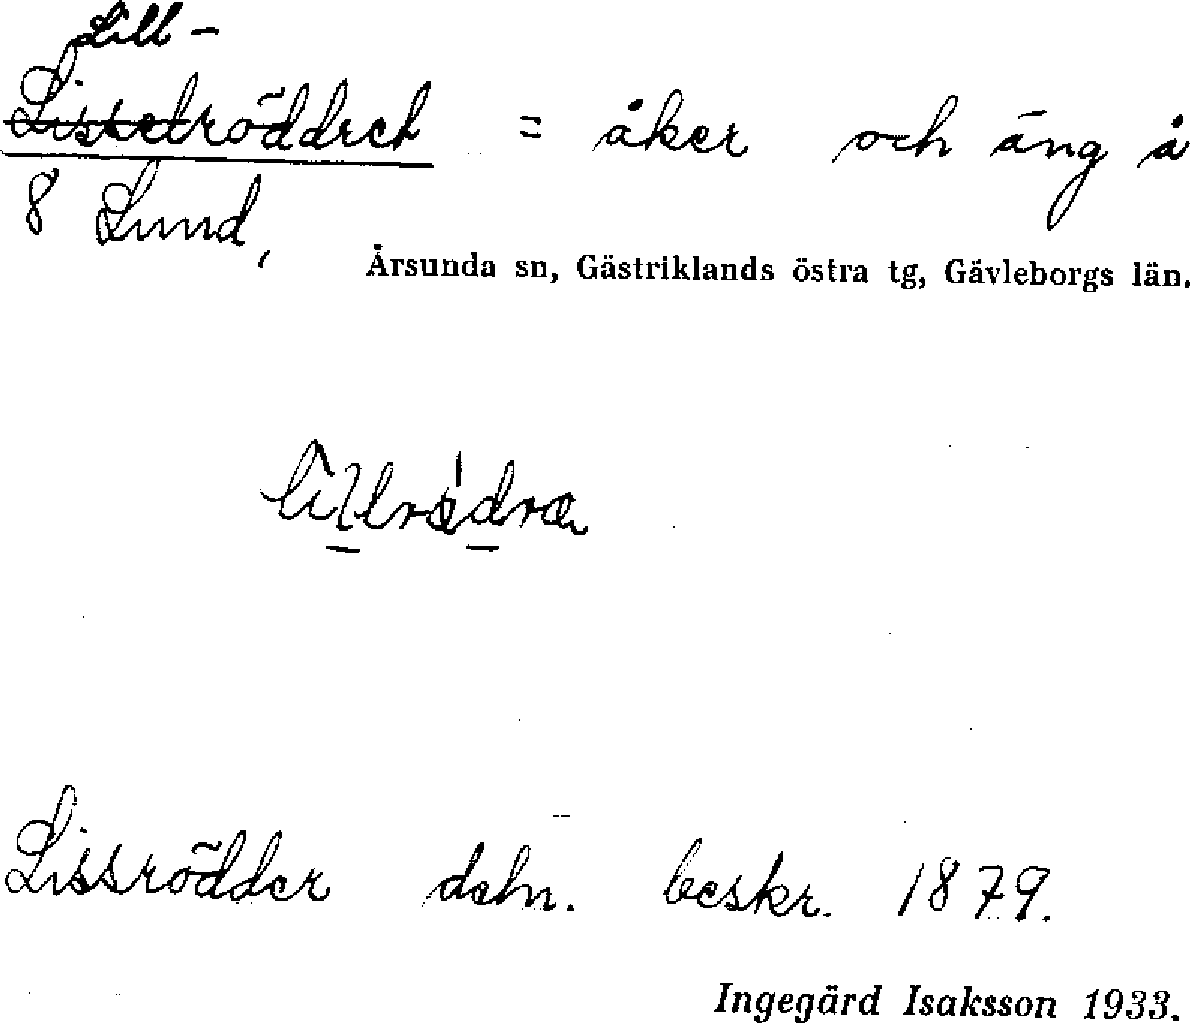 Lill-
Lisselröddret = åker och äng å
8 Lund,
Årsunda sn, Gästriklands östra tg, Gävleborgs län.
Lissrödder deln. beskr. 1879.
Ingegärd Isaksson 1933.